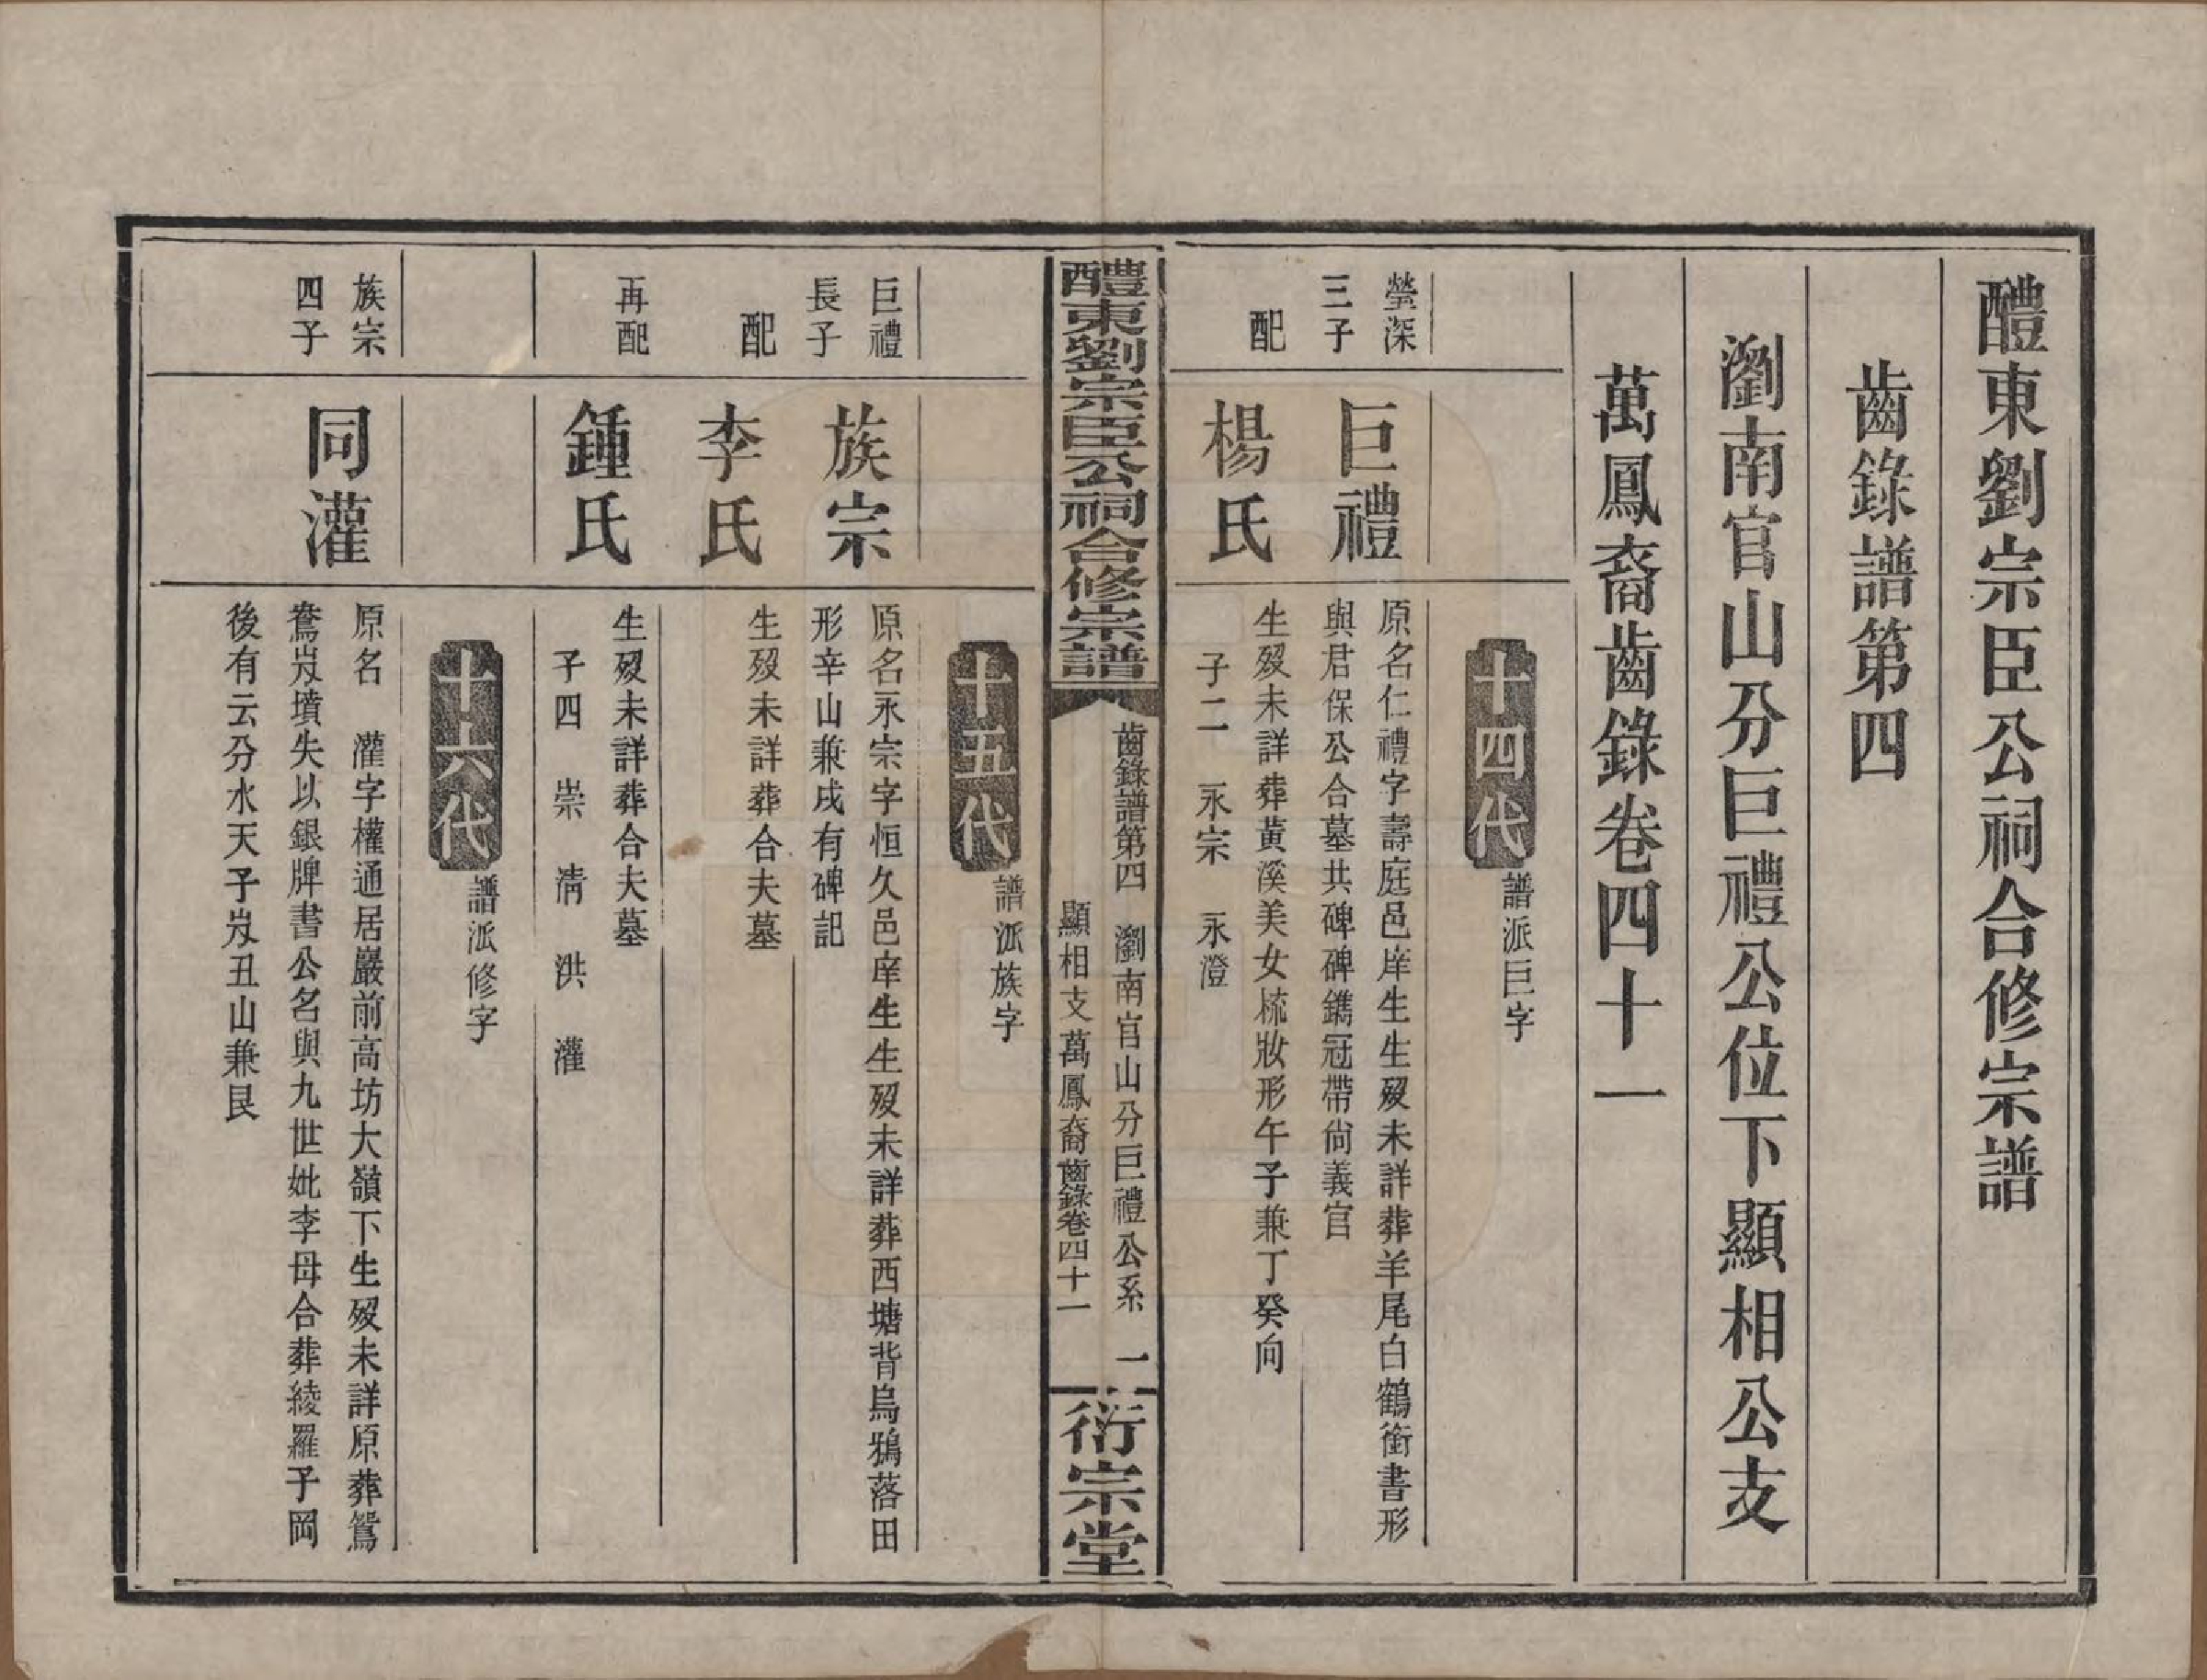 醴東劉宗臣公祠合修宗譜
齒錄譜第四
瀏南官山分巨禮公位下顯相公支
萬鳳裔齒錄卷四十一
十四代
譜派巨字
瑩深
三子
巨禮
原名仁禮字壽庭邑庠生生歿未詳葬羊尾白鶴銜書形
與君保公合墓共碑碑鐫冠帶尙義官
配
楊氏
生歿未詳葬黃溪美女梳妝形午子兼丁癸向
子二 永宗 永澄
醴東劉宗臣公祠合修宗譜
齒錄譜第四 瀏南官山分巨禮公系 一
顯相支萬鳳裔齒錄卷四十一
衍宗堂
十五代
譜派族字
巨禮
長子
族宗
原名永宗字恒久邑庠生生生歿未詳葬西塘背烏鴉落田
形辛山兼戌有碑記
配
李氏
生歿未詳葬合夫墓
再配
鍾氏
生歿未詳葬合夫墓
子四 崇 清 洪 灌
十六代
譜派修字
族宗
四子
同灌
原名 灌字權通居巖前高坊大嶺下生歿未詳原葬鴛
鴦岌墳失以銀牌書公名與九世妣李母合葬綾羅子岡
後有云分水天子岌丑山兼艮